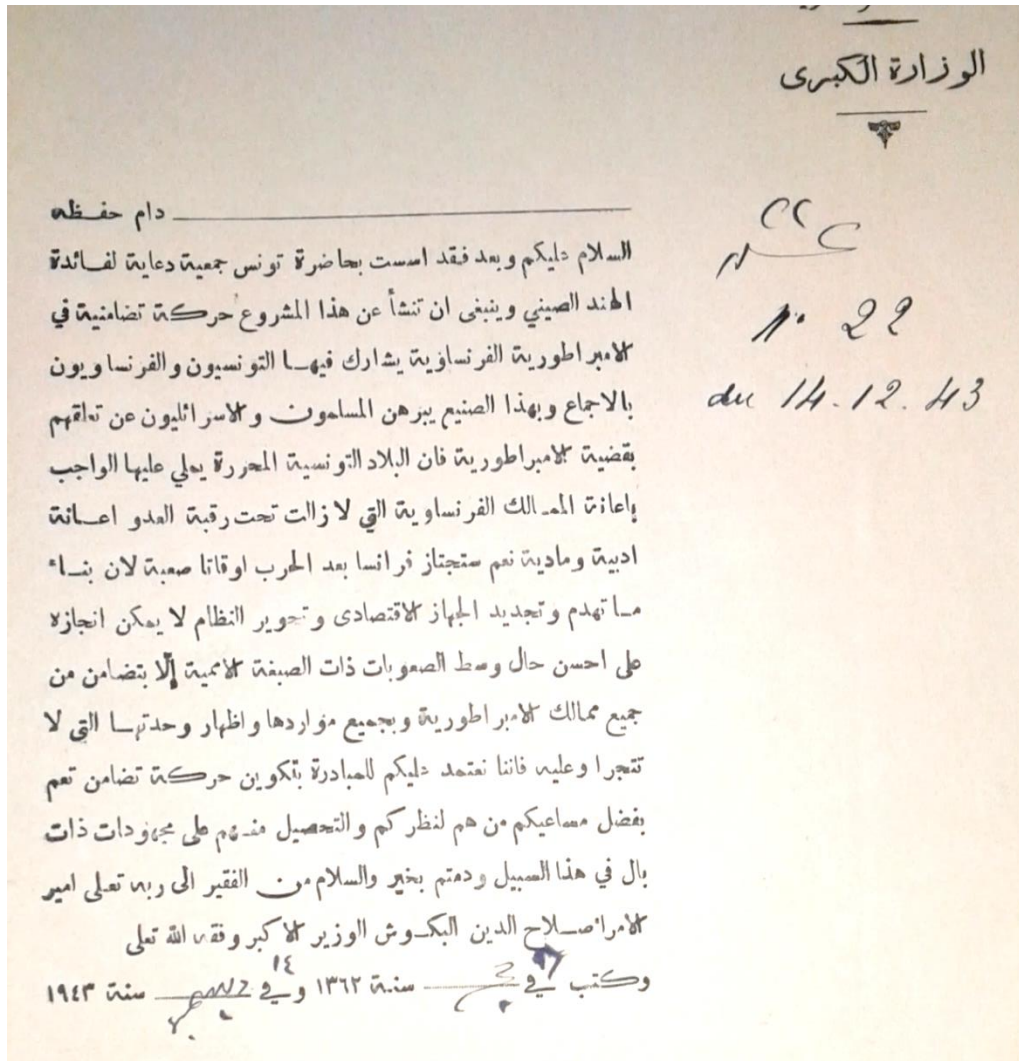 الوزارة الكبرى
نº 22
du 14.12.43
دام حفظه
السلام عليكم وبعد فقد اسست بحاضرة تونس جمعية دعاية لفائدة
الهند الصيني وينبغى ان تنشأ عن هذا المشروع حركة تضامنية في
الامبراطورية الفرنساوية يشارك فيها التونسيون والفرنساويون
بالاجماع وبهذا الصنيع يبرهن المسلمون والاسرائليون عن تعلقهم
بقضية الامبراطورية فان البلاد التونسية المحررة يملي عليها الواجب
باعانة الممالك الفرنساوية التي لا زالت تحت رقبة العدو اعانة
ادبية ومادية نعم ستجتاز فرانسا بعد الحرب اوقاتا صعبة لان بناء
ما تهدم وتجديد الجهاز الاقتصادى وتحوير النظام لا يمكن انجازه
على احسن حال وسط الصعوبات ذات الصبغة الاممية إلا بتضامن من
جميع ممالك الامبراطورية وبجميع مواردها واظهار وحدتها التي لا
تتجرا وعليه فاننا نعتمد عليكم للمبادرة بتكوين حركة تضامن تعم
بفضل مساعيكم من هم لنظركم والتحصيل منهم على مجهودات ذات
بال في هذا السبيل ودمتم بخير والسلام من الفقير الى ربه تعلى امير
الامرا صلاح الدين البكوش الوزير الاكبر وفقه الله تعلى
وكتب في سنة ١٣٦٢ وفي ١٤ ديسمبر سنة ١٩٤٣